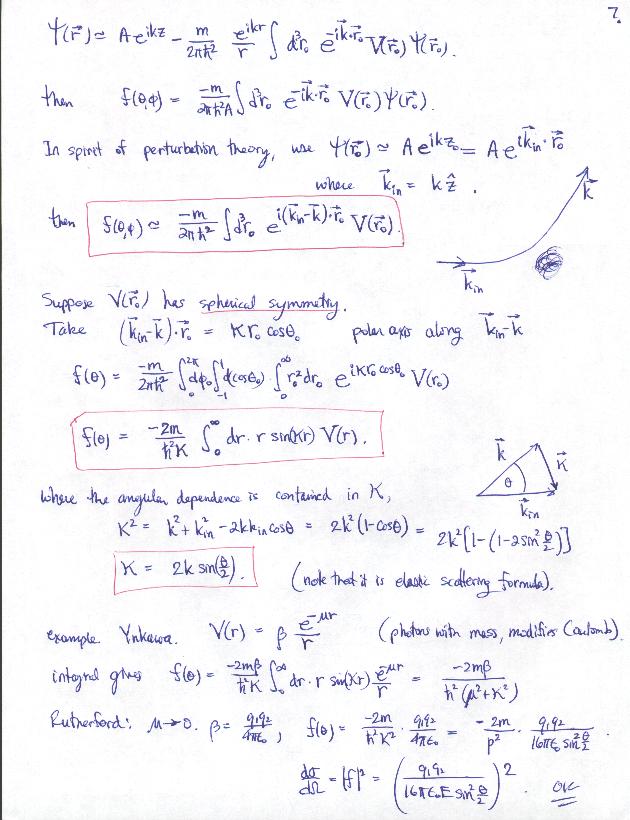 7.
Ψ(r⃗) ≃ A e^{ikz} − m/(2πħ²) e^{ikr}/r ∫ d³r₀ e^{−ik⃗·r⃗₀} V(r⃗₀) Ψ(r⃗₀).
then f(θ,φ) = −m/(2πħ²A) ∫ d³r₀ e^{−ik⃗·r⃗₀} V(r⃗₀) Ψ(r⃗₀).
In spirit of perturbation theory, use Ψ(r⃗₀) ≃ A e^{ikz₀} = A e^{ik⃗_in·r⃗₀}
where k⃗_in = k ẑ.
k⃗
then f(θ,φ) ≃ −m/(2πħ²) ∫ d³r₀ e^{i(k⃗_in−k⃗)·r⃗₀} V(r⃗₀).
k⃗_in
Suppose V(r⃗₀) has spherical symmetry.
Take (k⃗_in−k⃗)·r⃗₀ = K r₀ cosθ₀ polar axis along k⃗_in−k⃗
f(θ) = −m/(2πħ²) ∫₀^{2π} dφ₀ ∫₋₁^{1} d(cosθ₀) ∫₀^∞ r₀² dr₀ e^{iKr₀cosθ₀} V(r₀)
f(θ) = −2m/(ħ²K) ∫₀^∞ dr· r sin(Kr) V(r).
k⃗ θ K⃗
k⃗_in
where the angular dependence is contained in K,
K² = k² + k²_in − 2k k_in cosθ = 2k²(1−cosθ) = 2k²[1−(1−2sin² θ/2)]
K = 2k sin(θ/2). (note that it is elastic scattering formula).
example Yukawa. V(r) = β e^{−μr}/r (photons with mass, modifies Coulomb).
integral gives f(θ) = −2mβ/(ħ²K) ∫₀^∞ dr· r sin(Kr) e^{−μr}/r = −2mβ/(ħ²(μ²+K²))
Rutherford: μ→0. β = q₁q₂/(4πε₀), f(θ) = −2m/(ħ²K²) · q₁q₂/(4πε₀) = −2m/p² · q₁q₂/(16πε₀ sin² θ/2).
dσ/dΩ = |f|² = (q₁q₂/(16πε₀E sin² θ/2))².